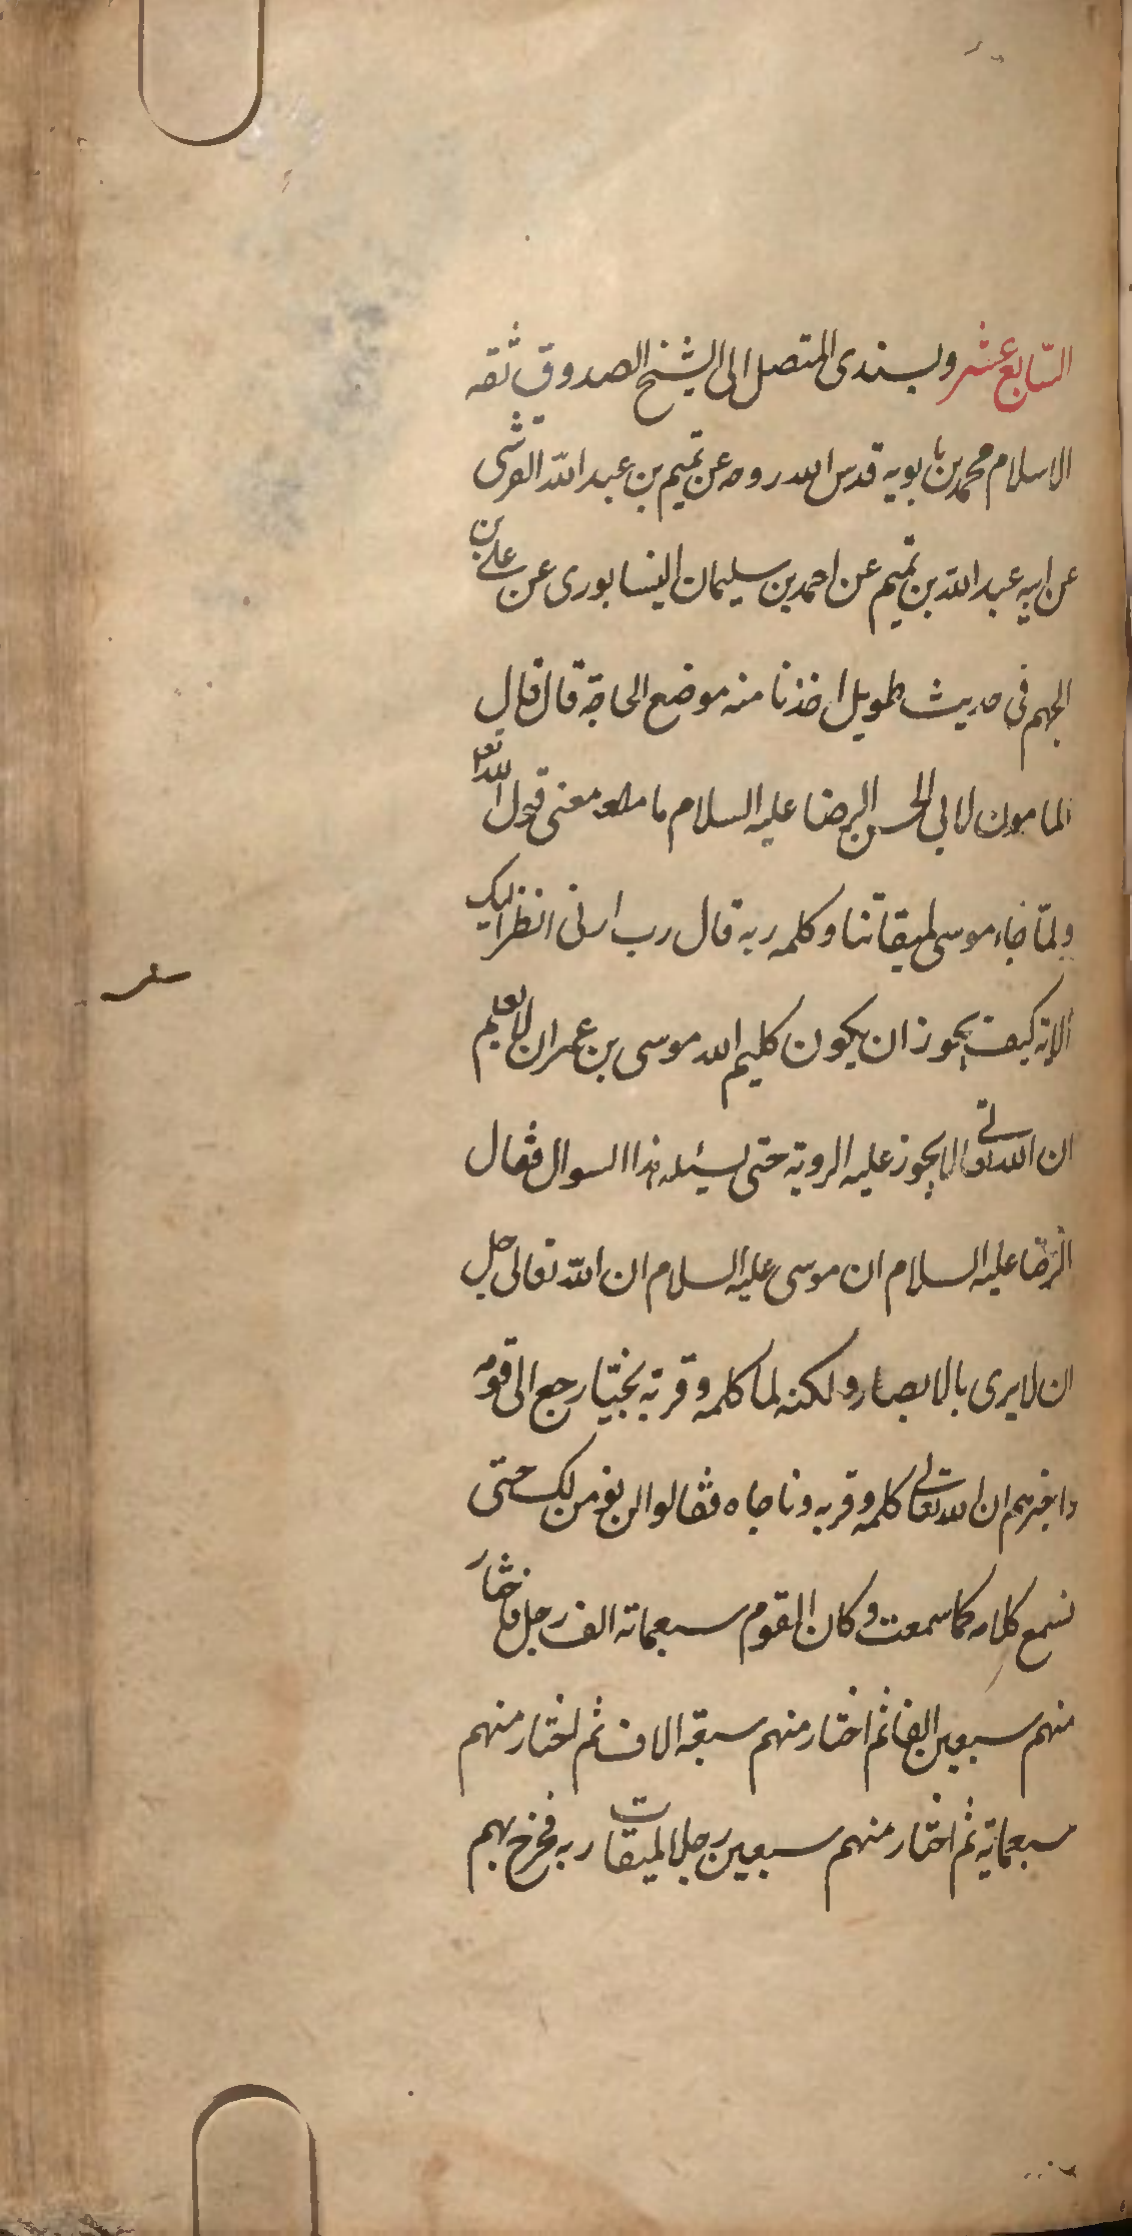 السّابع عشر وبسندى المتصل الى الشيخ الصدوق ثقه
الاسلام محمد بن بابويه قدس الله روحه عن تميم بن عبد الله القرشى
عن ابيه عبد الله بن تميم عن احمد بن سليمان النيسابورى عن على بن
الجهم فى حديث طويل اخذنا منه موضع الحاجة قال قال
المامون لابى الحسن الرضا عليه السلام ما معنى قول الله تعا
ولمّا جاء موسى لميقاتنا وكلمه ربه قال رب ارنى انظر اليك
الاية كيف يجوز ان يكون كليم الله موسى بن عمران لا يعلم
ان الله تعالى لا يجوز عليه الروية حتى يسئله هذا السوال فقال
الرضا عليه السلام ان موسى عليه السلام ان الله تعالى جل
ان لا يرى بالابصار ولكنه لما كلمه وقربه نجيا رجع الى قومه
واخبرهم ان الله تعالى كلمه وقربه وناجاه فقالوا لن نؤمن لك حتى
نسمع كلامه كما سمعت وكان القوم سبعماته الف رجل فاختار
منهم سبعين الفا ثم اختار منهم سبعة الاف ثم اختار منهم
سبعماية ثم اختار منهم سبعين رجلا لميقات ربه فخرج بهم